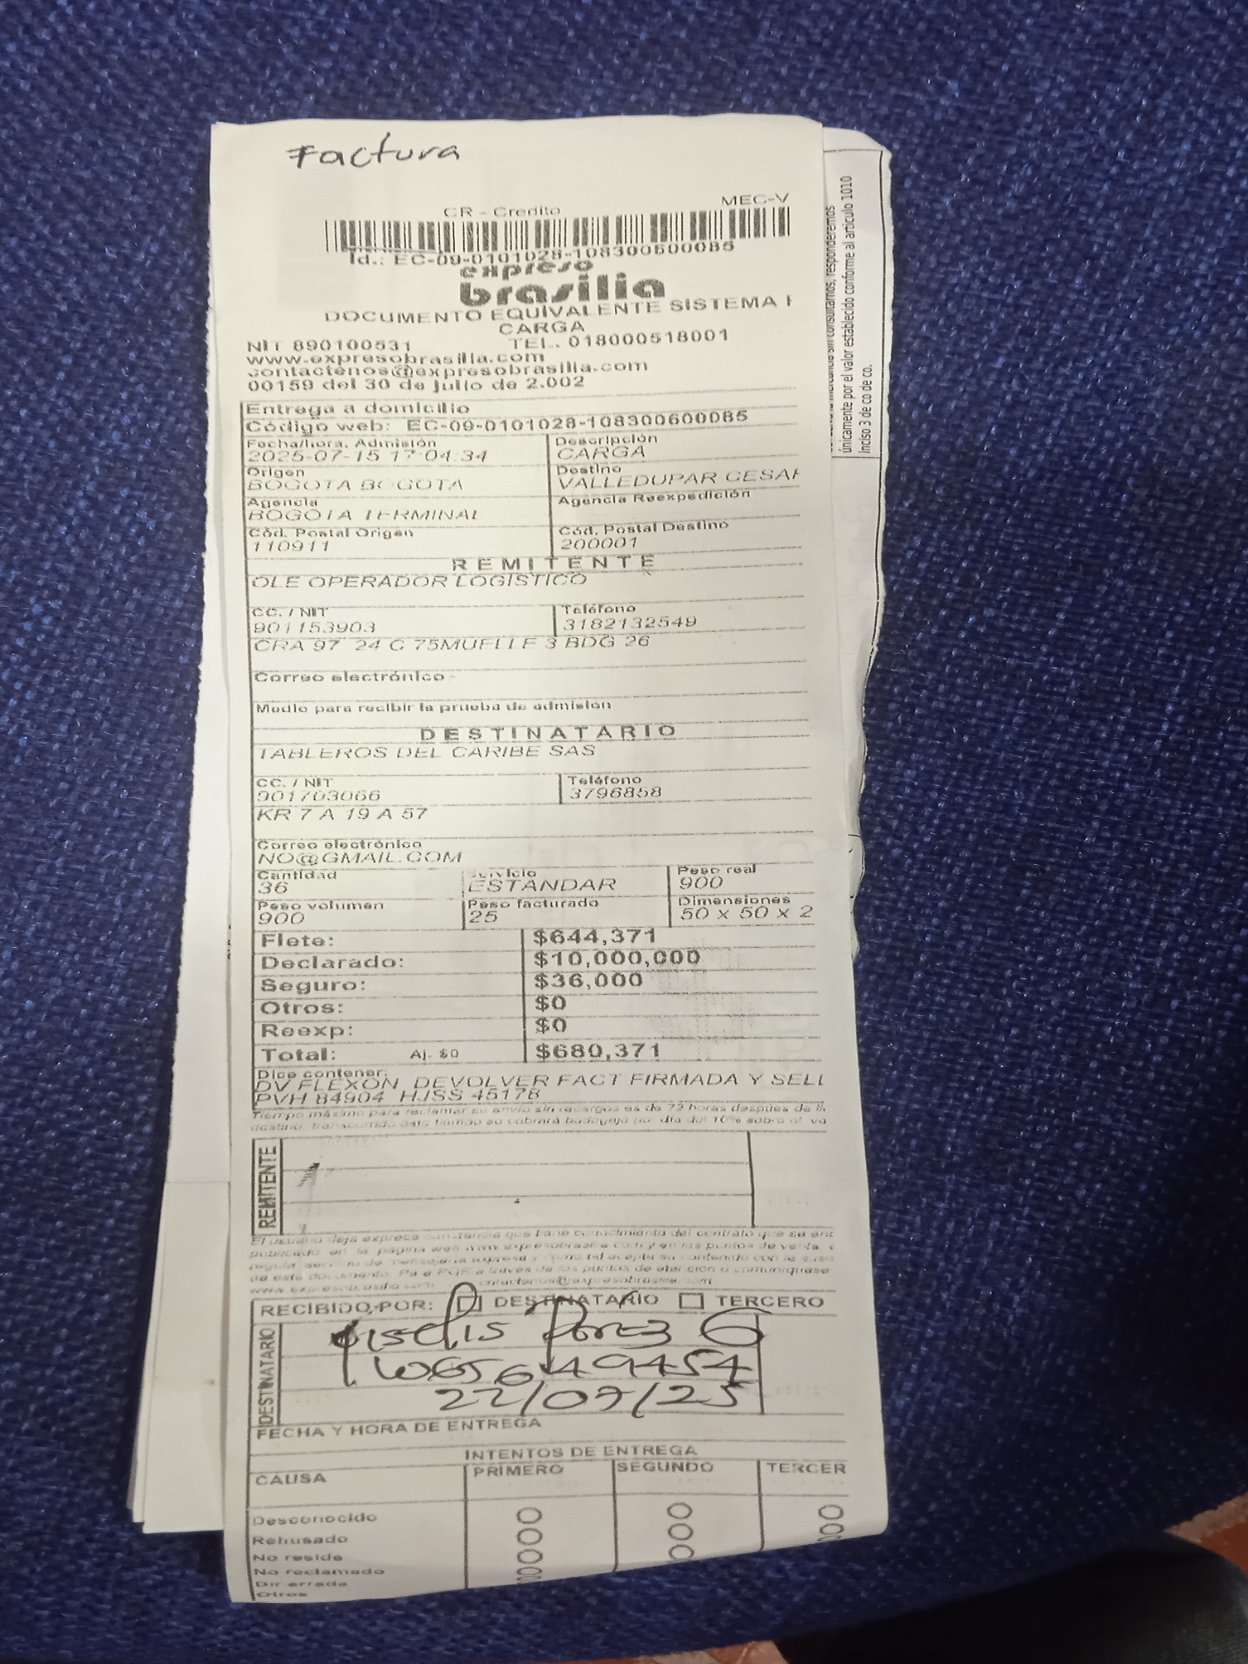 Factura
MEC-V
CR - Credito
Id.: EC-09-0101028-108300600085
expreso
brasilia
DOCUMENTO EQUIVALENTE SISTEMA
CARGA
NIT 890100531 TEL. 018000518001
www.expresobrasilia.com
contactenos@expresobrasilia.com
00159 del 30 de julio de 2.002
Entrega a domicilio
Código web: EC-09-0101028-108300600085
Fecha/hora. Admisión Descripción
2025-07-15 17:04:34 CARGA
Origen Destino
BOGOTA BOGOTA VALLEDUPAR CESAR
Agencia Agencia Reexpedición
BOGOTA TERMINAL
Cód. Postal Origen Cód. Postal Destino
110911 200001
REMITENTE
OLE OPERADOR LOGISTICO
CC. / NIT Teléfono
901153903 3182132549
CRA 97 24 C 75MUELLE 3 BDG 26
Correo electrónico
Medio para recibir la prueba de admisión
DESTINATARIO
TABLEROS DEL CARIBE SAS
CC. / NIT Teléfono
901703066 3796858
KR 7 A 19 A 57
Correo electrónico
NO@GMAIL.COM
Cantidad Servicio Peso real
36 ESTANDAR 900
Peso volumen Peso facturado Dimensiones
900 25 50 x 50 x 2
Flete: $644,371
Declarado: $10,000,000
Seguro: $36,000
Otros: $0
Reexp: $0
Total: Aj. $0 $680,371
Dice contener:
DV FLEXON DEVOLVER FACT FIRMADA Y SELL
PVH 84904 HJSS 45178
Tiempo máximo para reclamar su envío sin recargos es de 72 horas despues de
destino, transcurrido este tiempo se cobrará bodegaje por día del 10% sobre el va
REMITENTE
El usuario deja expresa constancia que tiene conocimiento del contrato que se
publicado en la página web www.expresobrasilia.com y en los puntos de venta,
de este documento. Para PQR a través de los puntos de atención o comuníquese
www.expresobrasilia.com contactenos@expresobrasilia.com
RECIBIDO POR: DESTINATARIO TERCERO
DESTINATARIO
Perez G
1065649454
22/07/25
FECHA Y HORA DE ENTREGA
INTENTOS DE ENTREGA
CAUSA PRIMERO SEGUNDO TERCER
Desconocido
Rehusado
No reside
No reclamado
Dir errada
Otros
responderemos
únicamente por el valor establecido conforme al artículo 1010
inciso 3 de co de co.